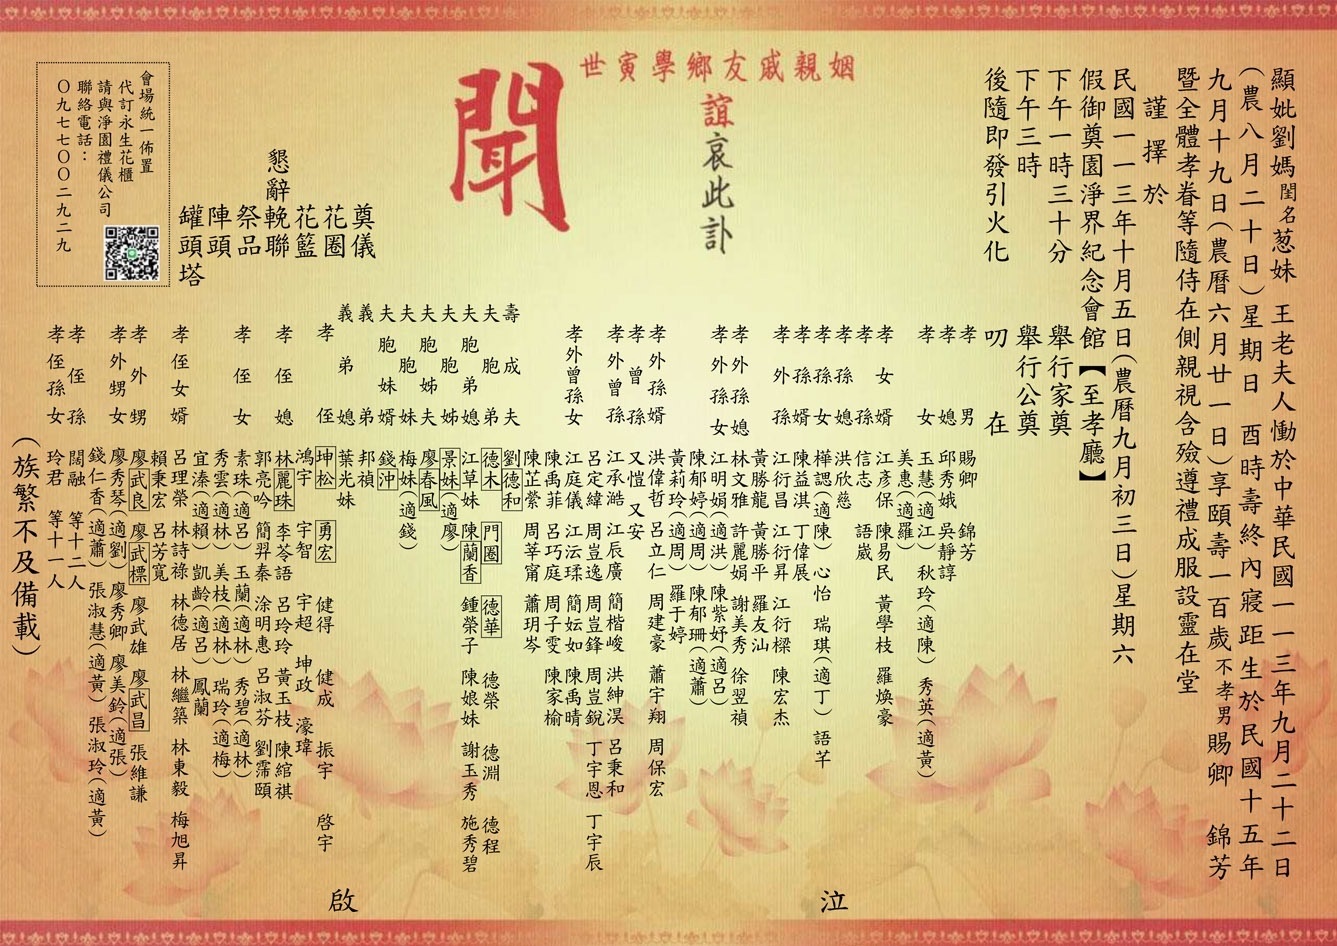 顯妣劉媽閨名葱妹 王老夫人慟於中華民國一一三年九月二十二日
(農八月二十日)星期日 酉時壽終內寢距生於民國十五年
九月十九日(農曆六月廿一日)享頤壽一百歲不孝男賜卿 錦芳
暨全體孝眷等隨侍在側親視含殮遵禮成服設靈在堂
謹擇於
民國一一三年十月五日(農曆九月初三日)星期六
假御奠園淨界紀念會館【至孝廳】
下午一時三十分 舉行家奠
下午三時 舉行公奠
後隨即發引火化 叨在
姻親戚友鄉學寅世
誼哀此訃
聞
孝男 賜卿 錦芳
孝媳 邱秀娥 吳靜諄
孝女 玉慧(適江) 秋玲(適陳) 秀英(適黃)
美惠(適羅)
孝女婿 江彥保 陳易民 黃學枝 羅煥豪
孝孫 信志 語崴
孝孫媳 洪欣慈
孝孫女 樺諰(適陳) 心怡 瑞琪(適丁) 語芊
孝孫婿 陳益淇 丁偉展
孝外孫 江衍昌 江衍昇 江衍樑 陳宏杰
黃勝龍 黃勝平 羅友汕
孝外孫媳 林文雅 許麗娟 謝美秀 徐翌禎
孝外孫女 江明娟(適洪) 陳紫妤(適呂)
陳郁婷(適周) 陳郁珊(適蕭)
黃莉玲(適周) 羅于婷
孝外孫婿 洪偉哲 呂立仁 周建豪 蕭宇翔 周保宏
孝曾孫 又愷 又安
孝外曾孫 江承澔 江辰廣 簡楷峻 洪紳淏 呂秉和
呂定緯 周豈逸 周豈鋒 周豈銳 丁宇恩 丁宇辰
孝外曾孫女 江庭儀 江沄瑈 簡妘如 陳禹晴
陳禹菲 呂巧庭 周子雯 陳家榆
陳芷縈 周莘甯 蕭玥岑
壽成夫 劉德和
夫胞弟 德木 門圈 德華 德榮 德淵 德程
夫胞弟媳 江草妹 陳蘭香 鍾榮子 陳娘妹 謝玉秀 施秀碧
夫胞姊 景妹(適廖)
夫胞姊夫 廖春風
夫胞妹 梅妹(適錢)
夫胞妹婿 錢沖
義弟 邦禎
義弟媳 葉光妹
孝侄 坤松 勇宏 健得 健成 振宇 啓宇
鴻宇 宇智 宇超 坤政 濠瑋
孝侄媳 林麗珠 李苓語 呂玲玲 黃玉枝 陳綰祺
郭亮吟 簡羿秦 涂明惠 呂淑芬 劉霈頤
孝侄女 素珠(適呂) 玉蘭(適林) 秀碧(適林)
秀雲(適林) 美枝(適林) 瑞玲(適梅)
宜溱(適賴) 凱齡(適呂) 鳳蘭
孝侄女婿 呂理榮 林詩祿 林德居 林繼築 林東毅 梅旭昇
賴秉宏 呂芳寬
孝外甥 廖武良 廖武標 廖武雄 廖武昌 張維謙
孝外甥女 廖秀琴(適劉) 廖秀卿 廖美鈴(適張)
錢仁香(適蕭) 張淑慧(適黃) 張淑玲(適黃)
孝侄孫 闊融 等十二人
孝侄孫女 玲君 等十一人
(族繁不及備載)
泣
啟
懇辭
奠儀
花圈
花籃
輓聯
祭品
陣頭
罐頭塔
會場統一佈置
代訂永生花櫃
請與淨園禮儀公司
聯絡電話：
〇九七七〇〇二九二九